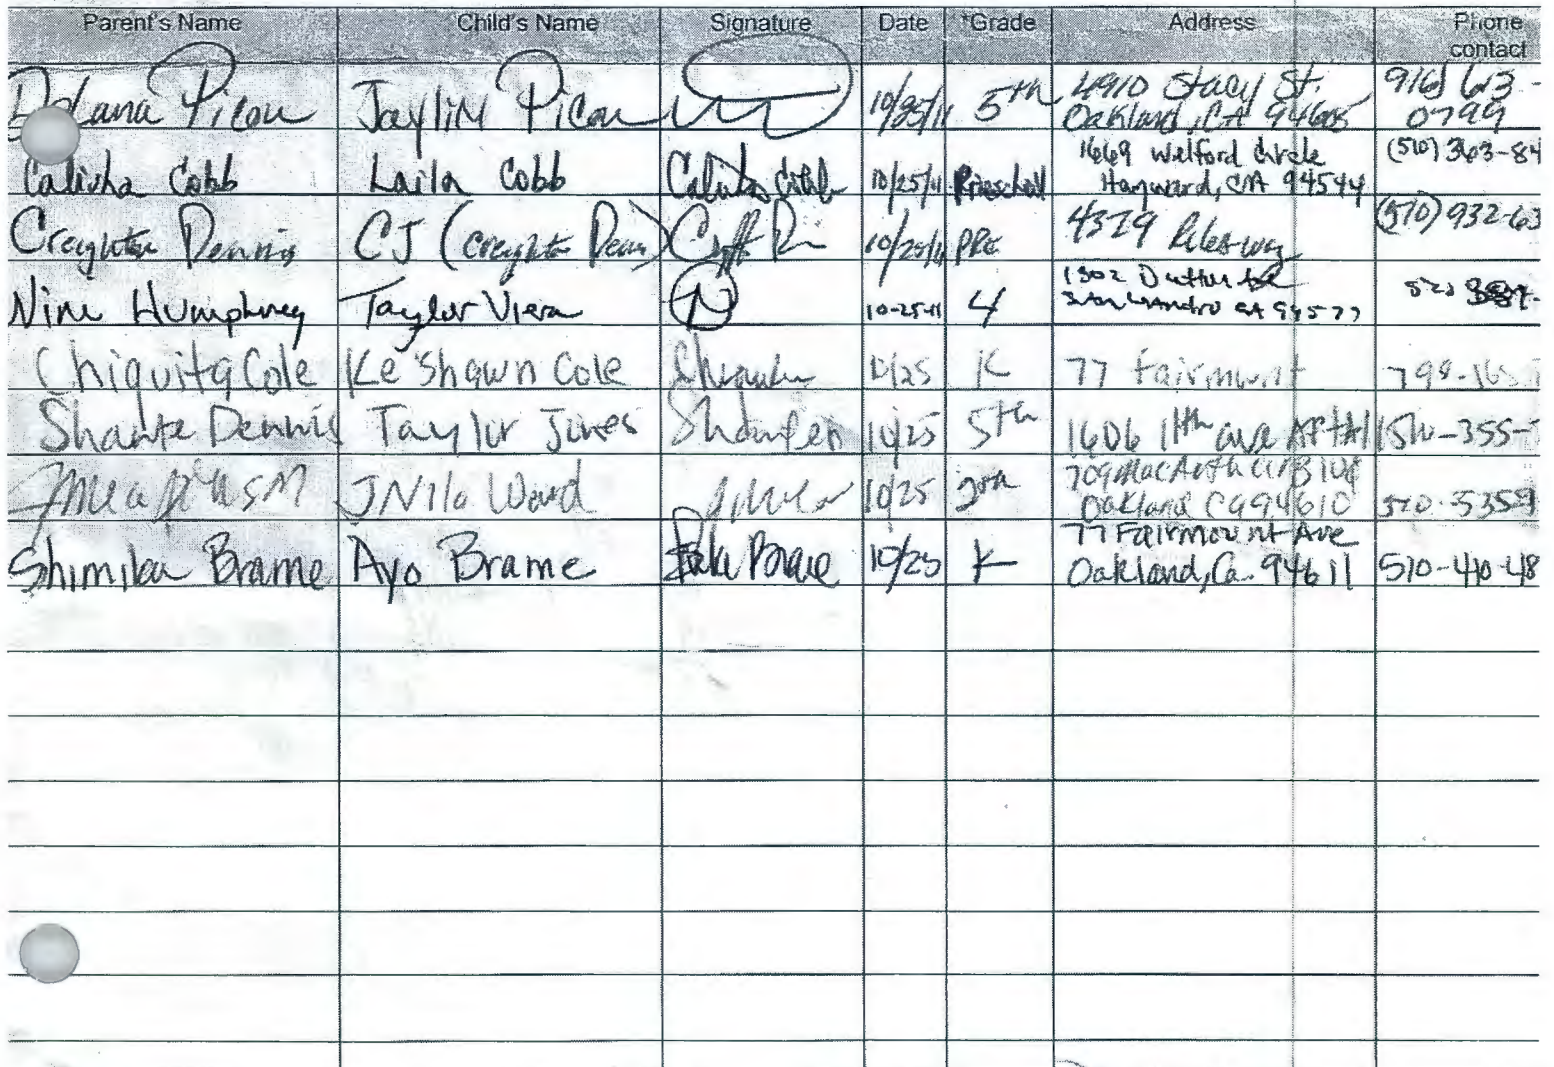 Parent's Name Child's Name Signature Date *Grade Address Phone contact
Picou Jaylin Picou 10/25/11 5th 4910 Stacy St. Oakland, CA 94605 916) 613-0799
Calisha Cobb Laila Cobb Calisha Cobb 10/25/11 Preschool 1669 Welford Circle Hayward, CA 94544 (510) 363-84
Creighton Dennis CJ (Creighton Dennis) 10/25/11 PRE 4329 (510) 932-63
Nina Humphrey Taylor Viera N 10-25-11 4 1302 Dutton Ave San Leandro CA 94577 510
Chiquita Cole Ke'Shawn Cole 10/25 K 77 Fairmount 798-16
Shante Dennis Taylor Jones 10/25 5th 1606 11th ave APT#1 510-355-
JNila Ward 10/25 709 MacArthur Blvd Oakland Ca 94610 510-5355
Shimika Brame Ayo Brame 10/25 K 77 Fairmount Ave Oakland, Ca. 94611 510-410-48